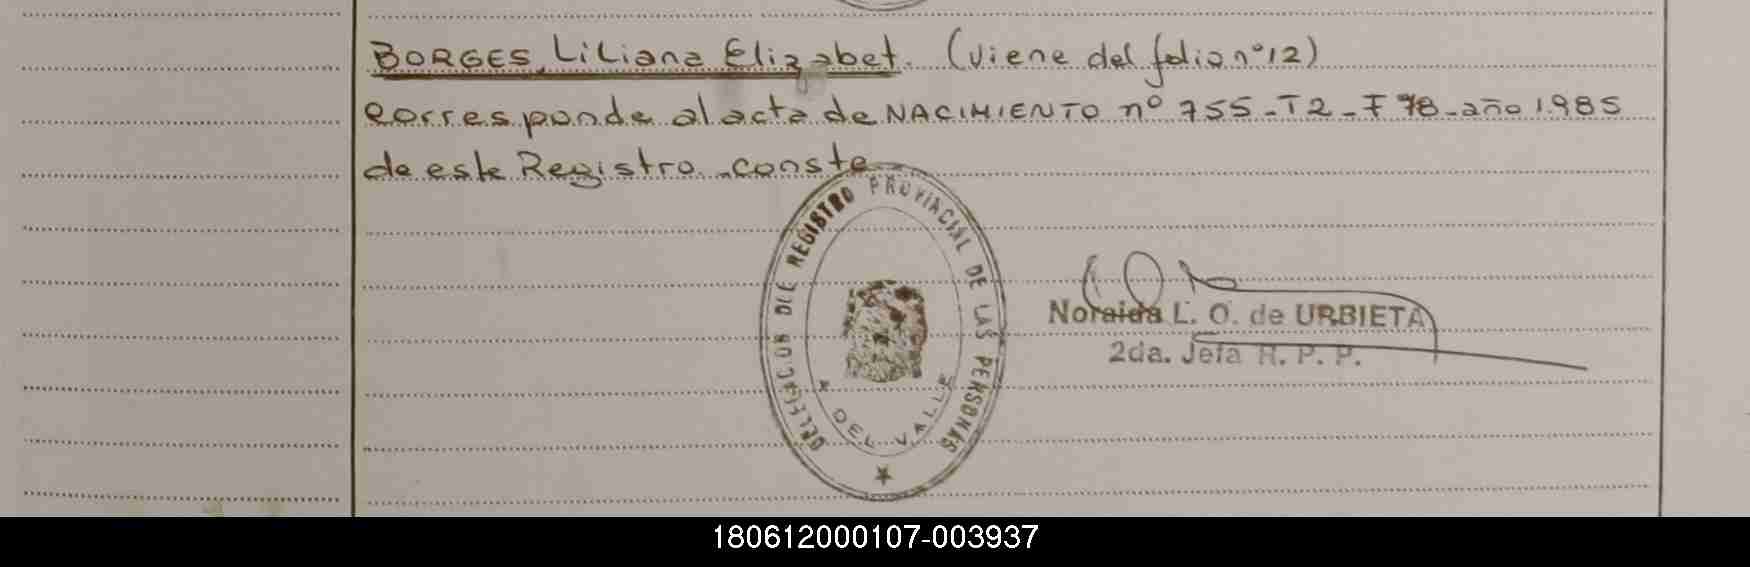 BORGES, Liliana Elizabet. (viene del folio nº 12)
corresponde al acta de NACIMIENTO nº 755-T2-F 78-año 1985
de este Registro.-conste
REGISTRO PROVINCIAL DE LAS PERSONAS
DEL VALLE
Noraida L. O. de URBIETA
2da. Jefa R. P. P.
180612000107-003937